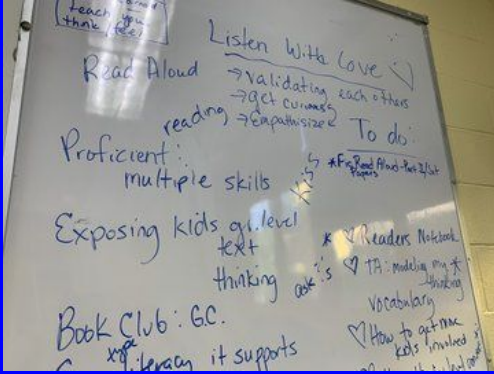 teach you
think/feel
Listen With Love
Read Aloud
→ validating each others
→ get curious
→ Empathisize
reading
Proficient:
multiple skills
To do:
Read Aloud-Part 2/Set
Papers
Exposing kids gr. level
text
thinking
ask ?'s
* ♡ Readers Notebook
♡ TA: modeling my *
thinking
vocabulary
♡ How to get more
kids involved
Book Club: G.C.
literacy it supports